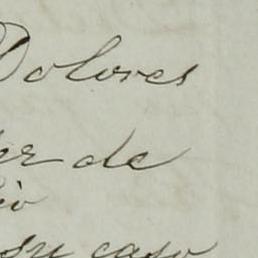 Dolores
er de
io
su caso